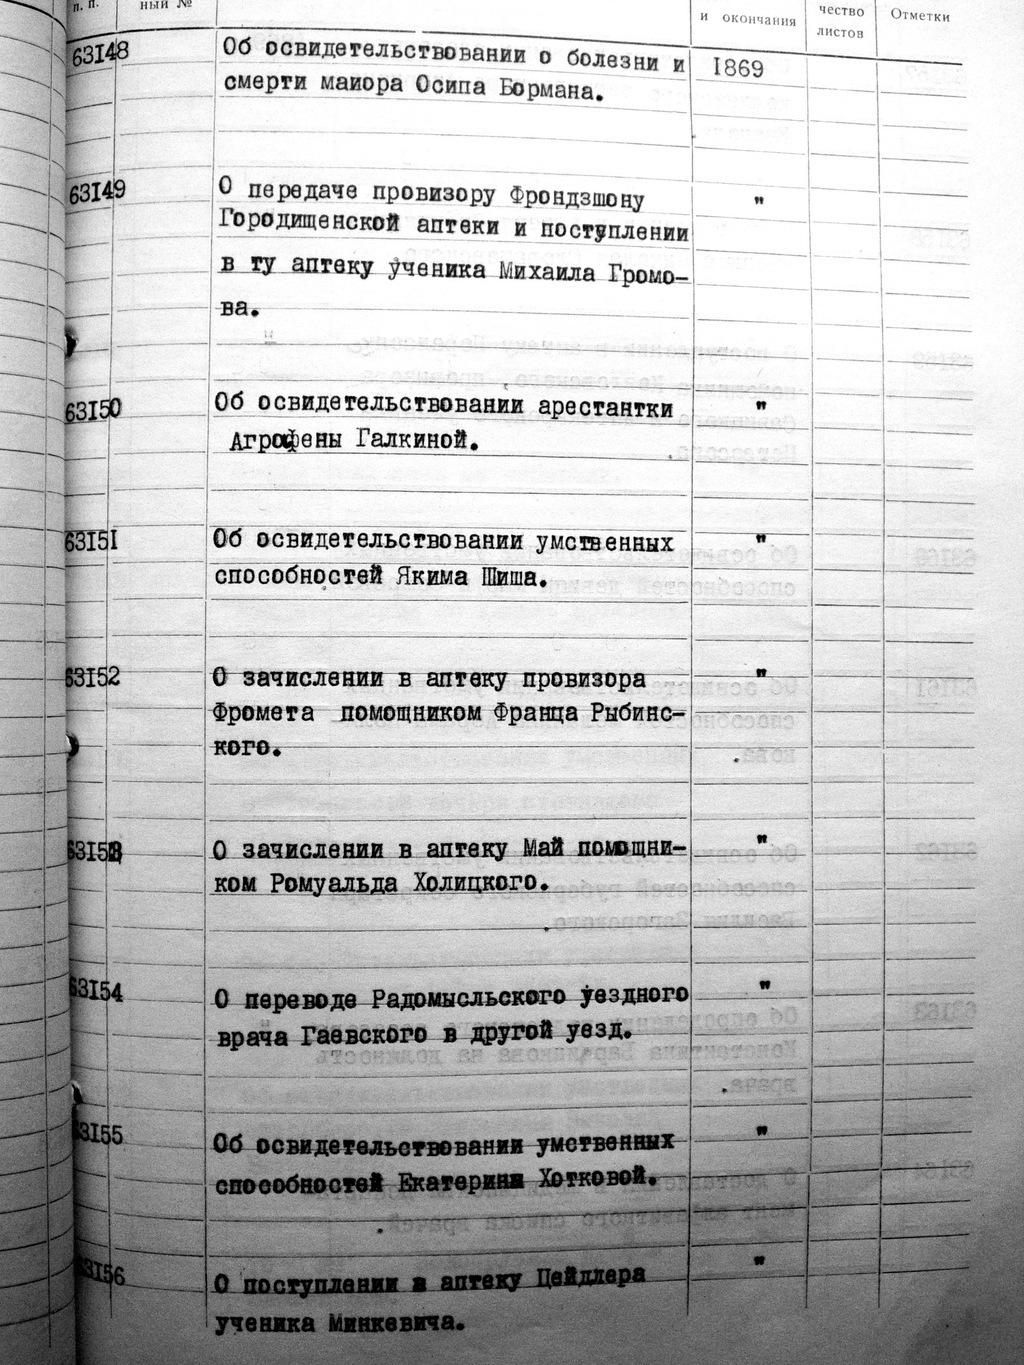 п. п.
ный №
и окончания
чество
листов
Отметки
63I48 Об освидетельствовании о болезни и I869
смерти майора Осипа Бормана.
63I49 О передаче провизору Фрондзшону "
Городищенской аптеки и поступлении
в ту аптеку ученика Михаила Громо-
ва.
63I50 Об освидетельствовании арестантки "
Агрофены Галкиной.
63I5I Об освидетельствовании умственных "
способностей Якима Шиша.
63I52 О зачислении в аптеку провизора "
Фромета помощником Франца Рыбинс-
кого.
63I53 О зачислении в аптеку Май помощни- "
ком Ромуальда Холицкого.
63I54 О переводе Радомысльского уездного "
врача Гаевского в другой уезд.
63I55 Об освидетельствовании умственных "
способностей Екатерины Хотковой.
63I56 О поступлении в аптеку Цейдлера "
ученика Минкевича.